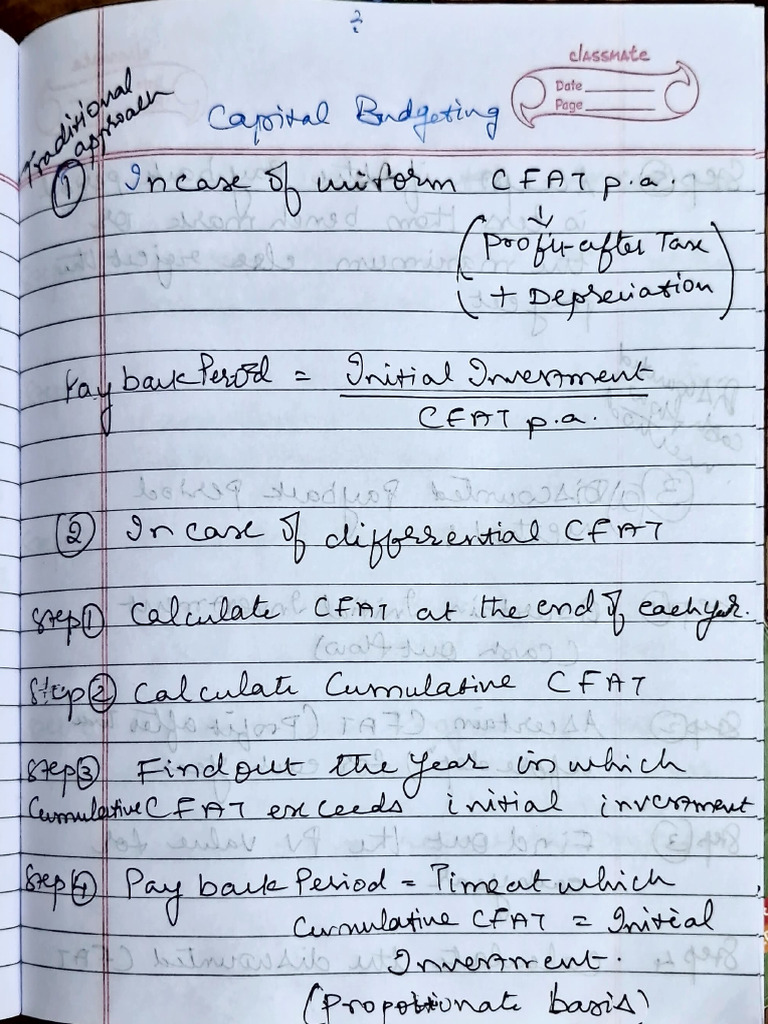 2
classmate
Date
Page
Traditional approach
Capital Budgeting
① Incase of uniform CFAT p.a.
↓
(Profit after Tax
+ Depreciation)
Payback Period = Initial Investment
CFAT p.a.
② Incase of differential CFAT
Step① Calculate CFAT at the end of each year.
Step② Calculate Cumulative CFAT
Step③ Find out the year in which
Cumulative CFAT exceeds initial investment
Step④ Pay back Period = Time at which
Cumulative CFAT = Initial
Investment.
(Proportionate basis)